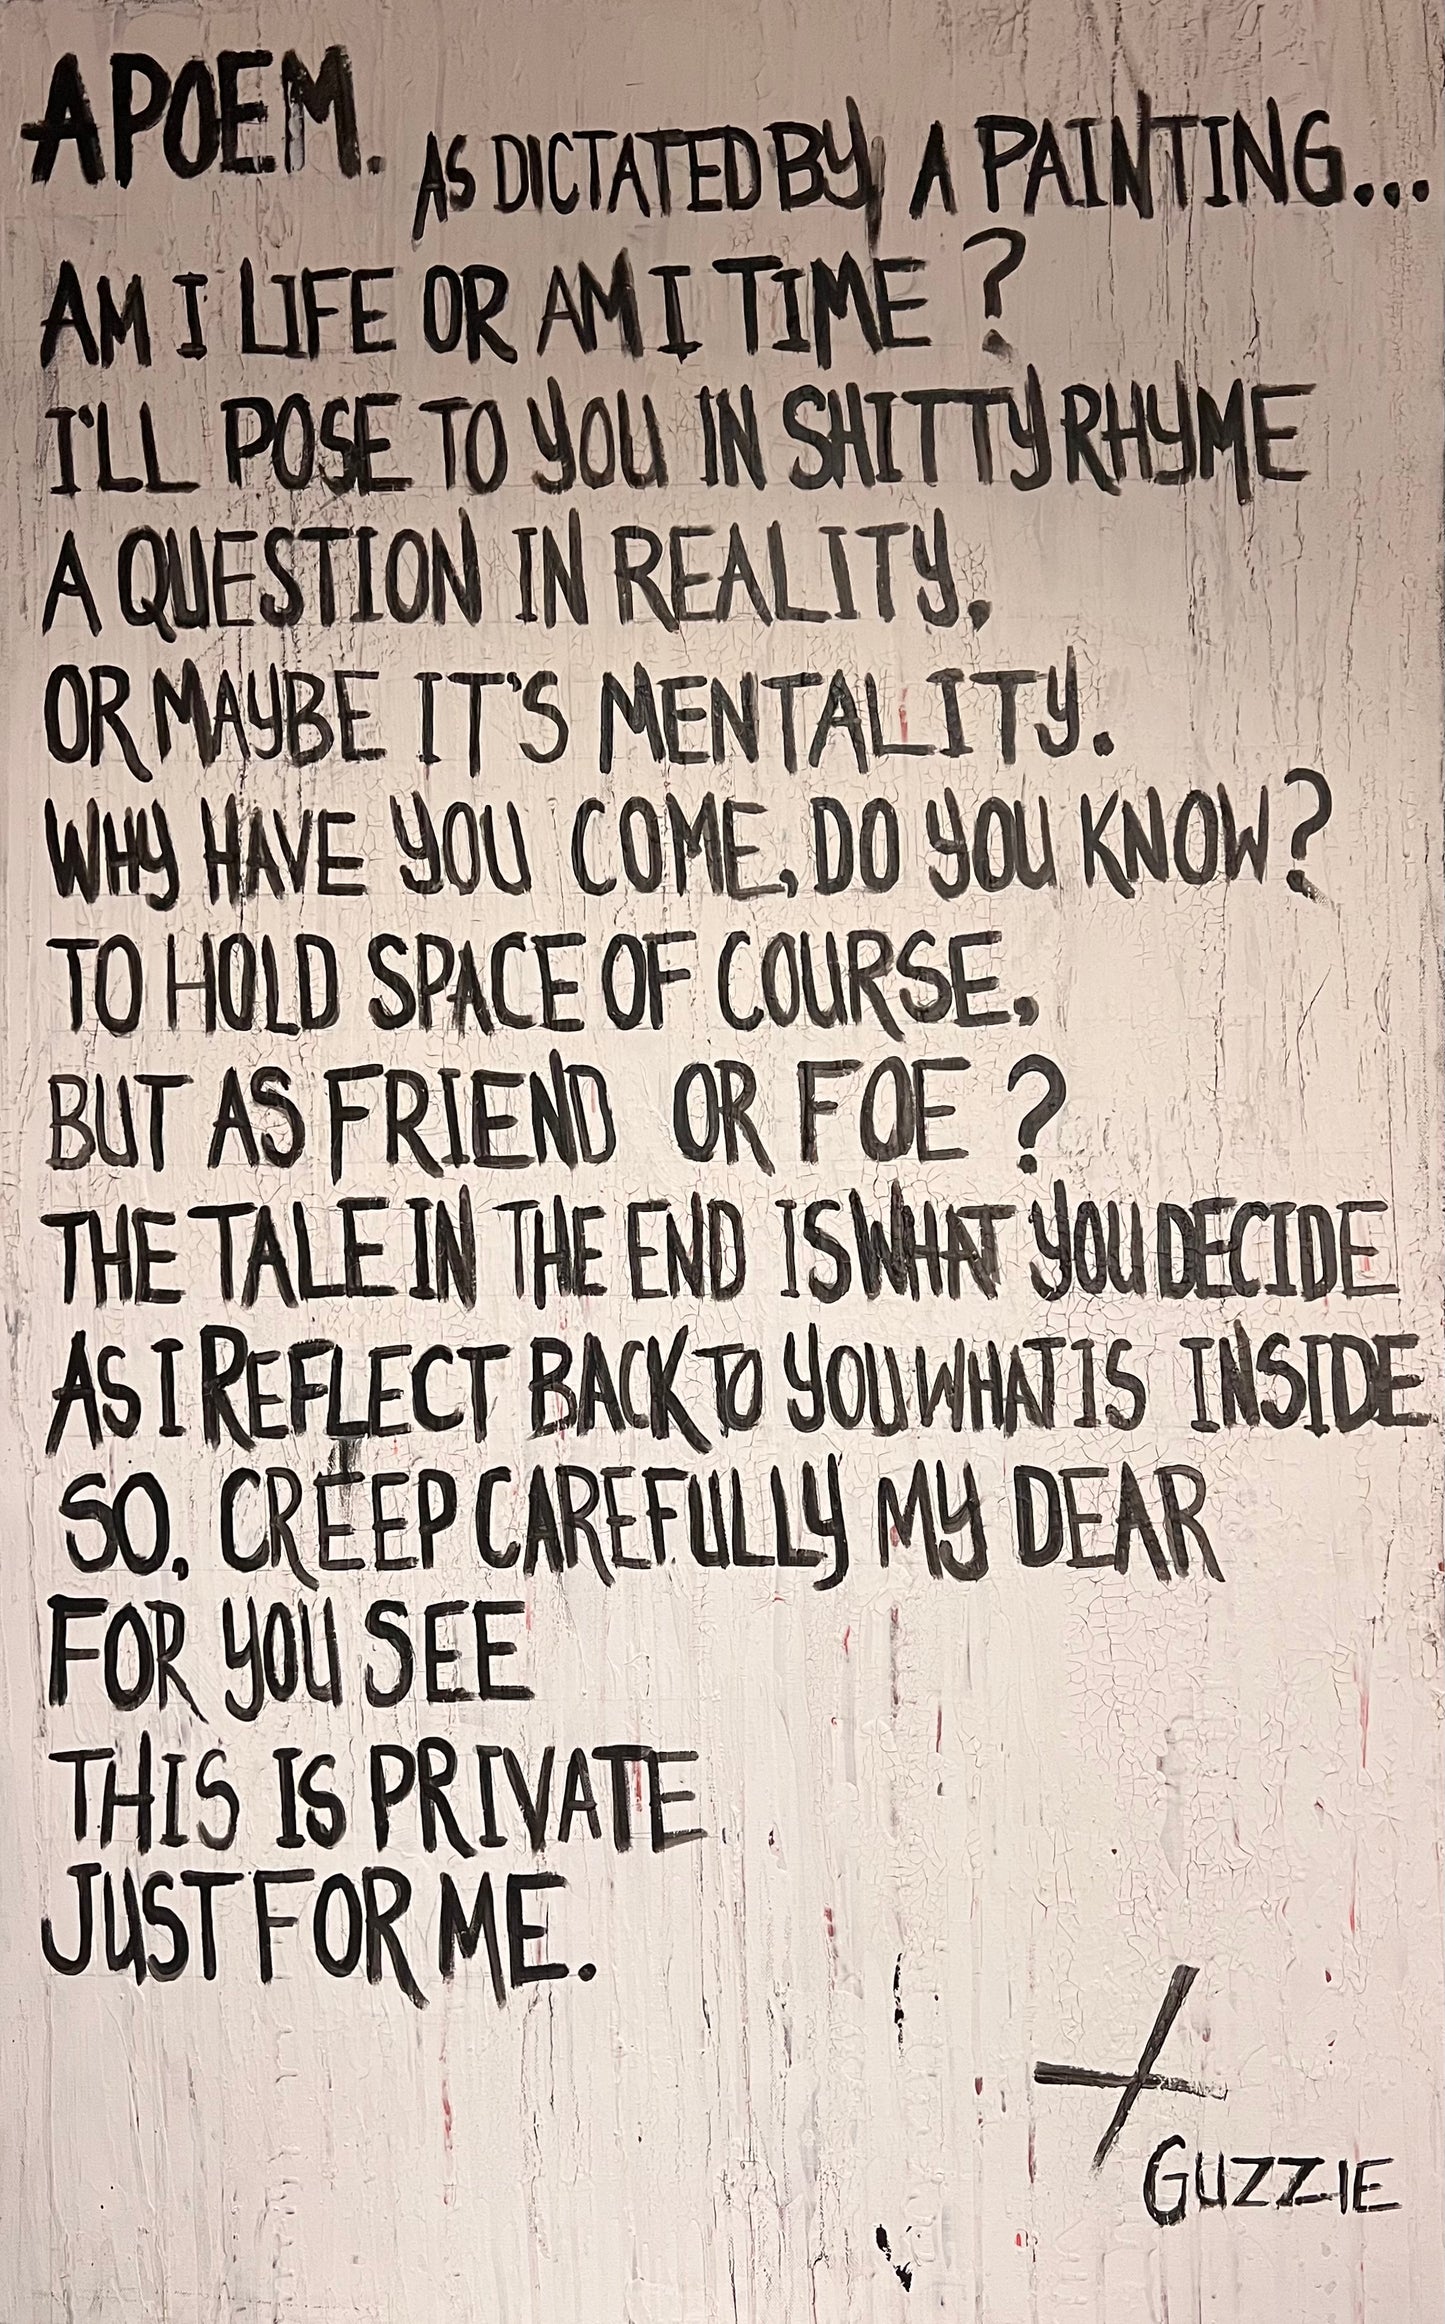 A POEM. AS DICTATED BY A PAINTING...
AM I LIFE OR AM I TIME?
I'LL POSE TO YOU IN SHITTY RHYME
A QUESTION IN REALITY.
OR MAYBE IT'S MENTALITY.
WHY HAVE YOU COME, DO YOU KNOW?
TO HOLD SPACE OF COURSE,
BUT AS FRIEND OR FOE?
THE TALE IN THE END IS WHAT YOU DECIDE
AS I REFLECT BACK TO YOU WHAT IS INSIDE
SO, CREEP CAREFULLY MY DEAR
FOR YOU SEE
THIS IS PRIVATE
JUST FOR ME.
GUZZIE